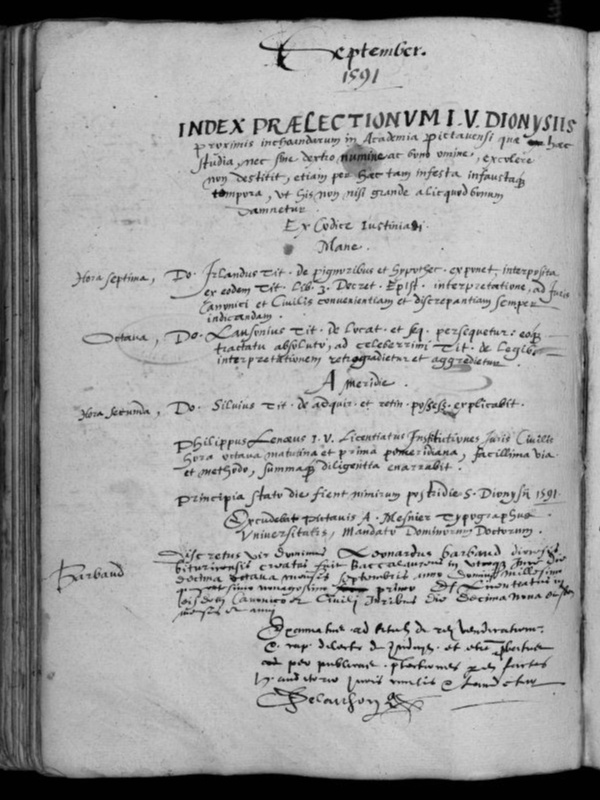 September.
1591
INDEX PRÆLECTIONVM I. V. DIONYSIIS
proximis inchoandarum in Academia Pictauensi quæ hæc
studia, nec sine dextro numine ac bono omine, excolere
non destitit, etiam per hæc tam infesta infaustaq
tempora, vt his non nisi grande aliquod bonum
damnetur.
Ex Codice Iustiniani.
Mane.
Hora septima, Do. Irlandus Tit. de pignoribus et hypothec. exponet, interposita
ex eodem Tit. Lib. 3. Decret. Epist. interpretatione, ad Iuris
Canonici et Ciuilis conuenientiam et discrepantiam semper
indicandam.
Octaua, Do. Lausonius Tit. de locat. et seq. persequetur: eoq
tractatu absoluto, ad celeberrimi Tit. de legib.
interpretationem retrogradietur et aggredietur.
A meridie.
Hora secunda, Do. Siluius Tit. de adquir. et retin. possess. explicabit.
Philippus Lenæus I. V. Licentiatus Institutiones Iuris Ciuilis
hora octaua matutina et prima pomeridiana, facillima via
et methodo, summaq diligentia enarrabit.
Principia stato die fient nimirum postridie S. Dionysii 1591.
Excudebat Pictauis A. Mesnier Typographus
Vniuersitatis, Mandato Dominorum Doctorum.
Barbaud
Discretus vir dominus Leonardus Barbaud diocesis
bituricensis creatus fuit Baccalaureus in vtroq Iure die
decima octaua mensis septembris anno domini millesimo
nonagesimo primo Et licentiatus in
Canonico et Ciuili Iuribus die decima nona
mensis et anni
Examinatus ad titul. de rei vendicatione.
C. et
publicas
auditorio Iuris
Delauzhon